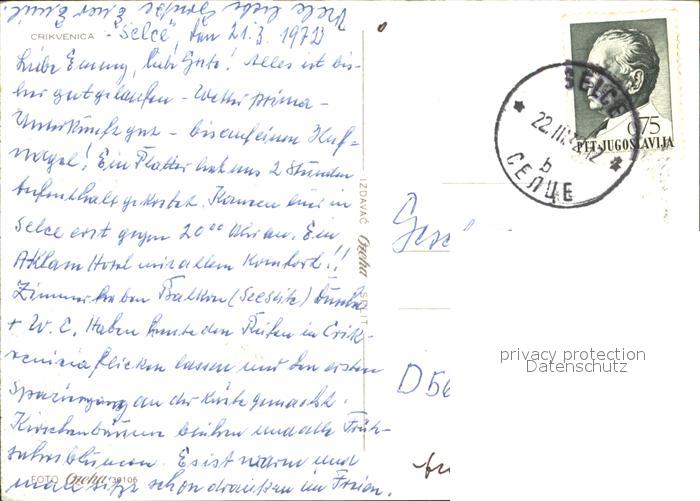 Viele liebe Grüße Euer Emil.
CRIKVENICA - Selce, den 21.3.1972
Liebe Emmy, liebe Gute! Alles ist bis-
her gut gelaufen - Wetter prima -
Unterkünfte gut - bis auf einen Huf-
nagel! Ein Platter hat uns 2 Stunden
Aufenthalt gekostet. Kamen hier in
Selce erst gegen 20⁰⁰ Uhr an. Ein
Hotel mit allem Komfort!!
Zimmer haben Balkon (Seeseite) Dusche
+ W.C. Haben heute den Reifen in Crik-
venica flicken lassen und den ersten
Spaziergang an der Küste gemacht.
Kirschenbäume blühen und alle Früh-
jahrsblumen. Es ist warm und
man sitzt schon draußen im Freien.
FOTO Čečka 39106
IZDAVAČ Čečka SPLIT
SELCE
22.III.72-12
b
СЕЛЦЕ
0,75
PTT JUGOSLAVIJA
privacy protection
Datenschutz